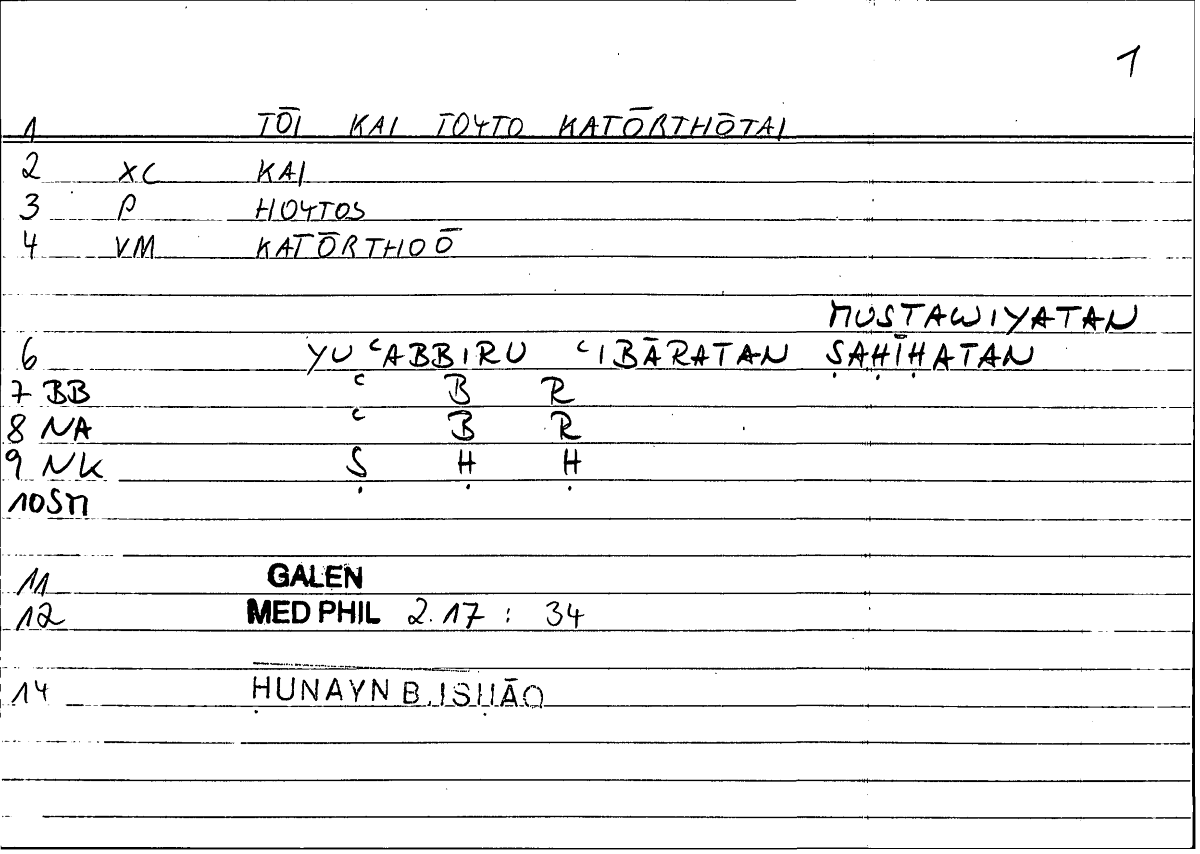 1
1 TŌI KAI TOYTO KATŌRTHŌTAI
2 XC KAI
3 P HOYTOS
4 VM KATŌRTHOŌ
MUSTAWIYATAN
6 YUʿABBIRU ʿIBĀRATAN ṢAḤĪḤATAN
7 BB ʿ B R
8 NA ʿ B R
9 NK Ṣ Ḥ Ḥ
10 SM
11 GALEN
12 MED PHIL 2.17 : 34
14 ḤUNAYN B. ISḤĀQ